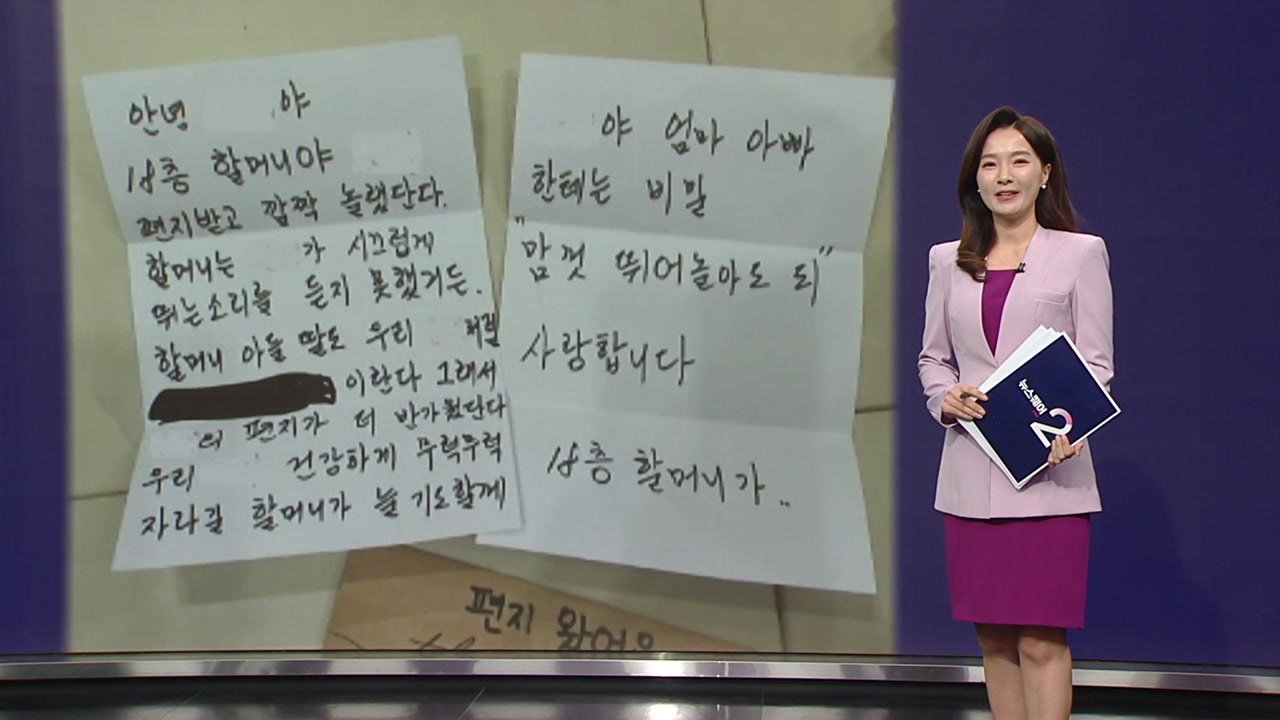 안녕 야
18층 할머니야
편지받고 깜짝 놀랬단다.
할머니는 가 시끄럽게
뛰는소리를 듣지 못했거든.
할머니 아들 딸도 우리 처럼
이란다 그래서
의 편지가 더 반가웠단다
우리 건강하게 무럭무럭
자라길 할머니가 늘 기도할께
야 엄마 아빠
한테는 비밀
"맘껏 뛰어놀아도 되"
사랑합니다
18층 할머니가..
편지 왔어요
뉴스퀘어
2